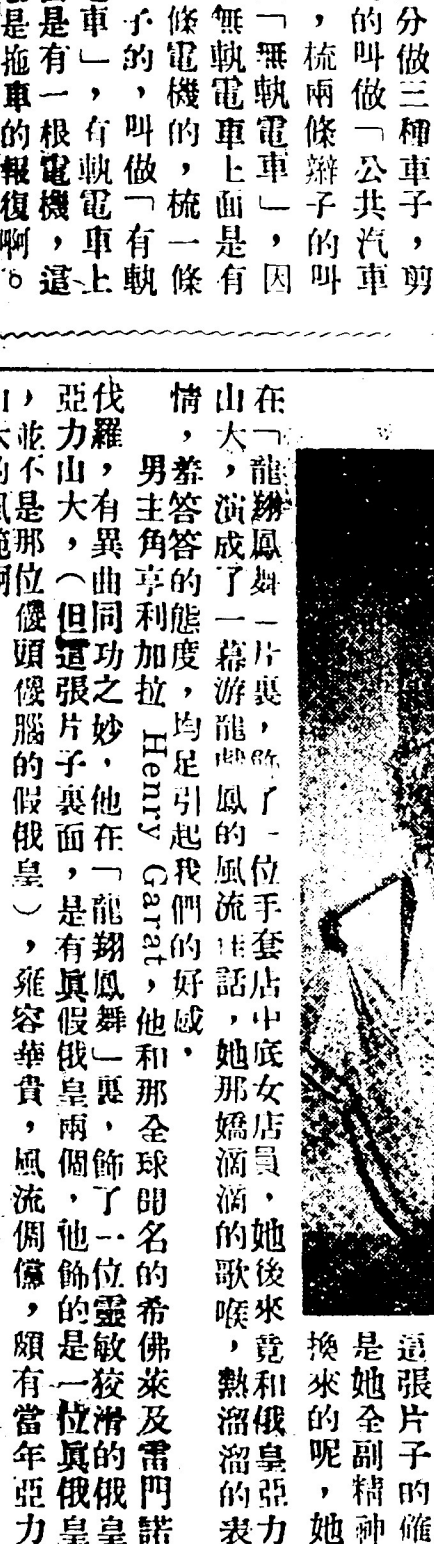 分做三種車子，剪
的叫做「公共汽車
，梳兩條辮子的叫
「無軌電車」，因
無軌電車上面是有
條電機的，梳一條
子的，叫做「有軌
車」，有軌電車上
是有一根電機，這
是拖車的報復啊。
這張片子的確
是她全副精神
換來的呢，她
在「龍翔鳳舞」一片裏，飾了一位手套店中底女店員，她後來竟和俄皇亞力
山大，演成了一幕游龍戲鳳的風流佳話，她那嬌滴滴的歌喉，熱溜溜的表
情，羞答答的態度，均足引起我們的好感，
男主角亨利加拉 Henry Garat，他和那全球聞名的希佛萊及雷門諾
伐羅，有異曲同功之妙，他在「龍翔鳳舞」裏，飾了一位靈敏狡滑的俄皇
亞力山大，（但這張片子裏面，是有眞假俄皇兩個，他飾的是一位眞俄皇
，並不是那位傻頭傻腦的假俄皇），雍容華貴，風流倜儻，頗有當年亞力